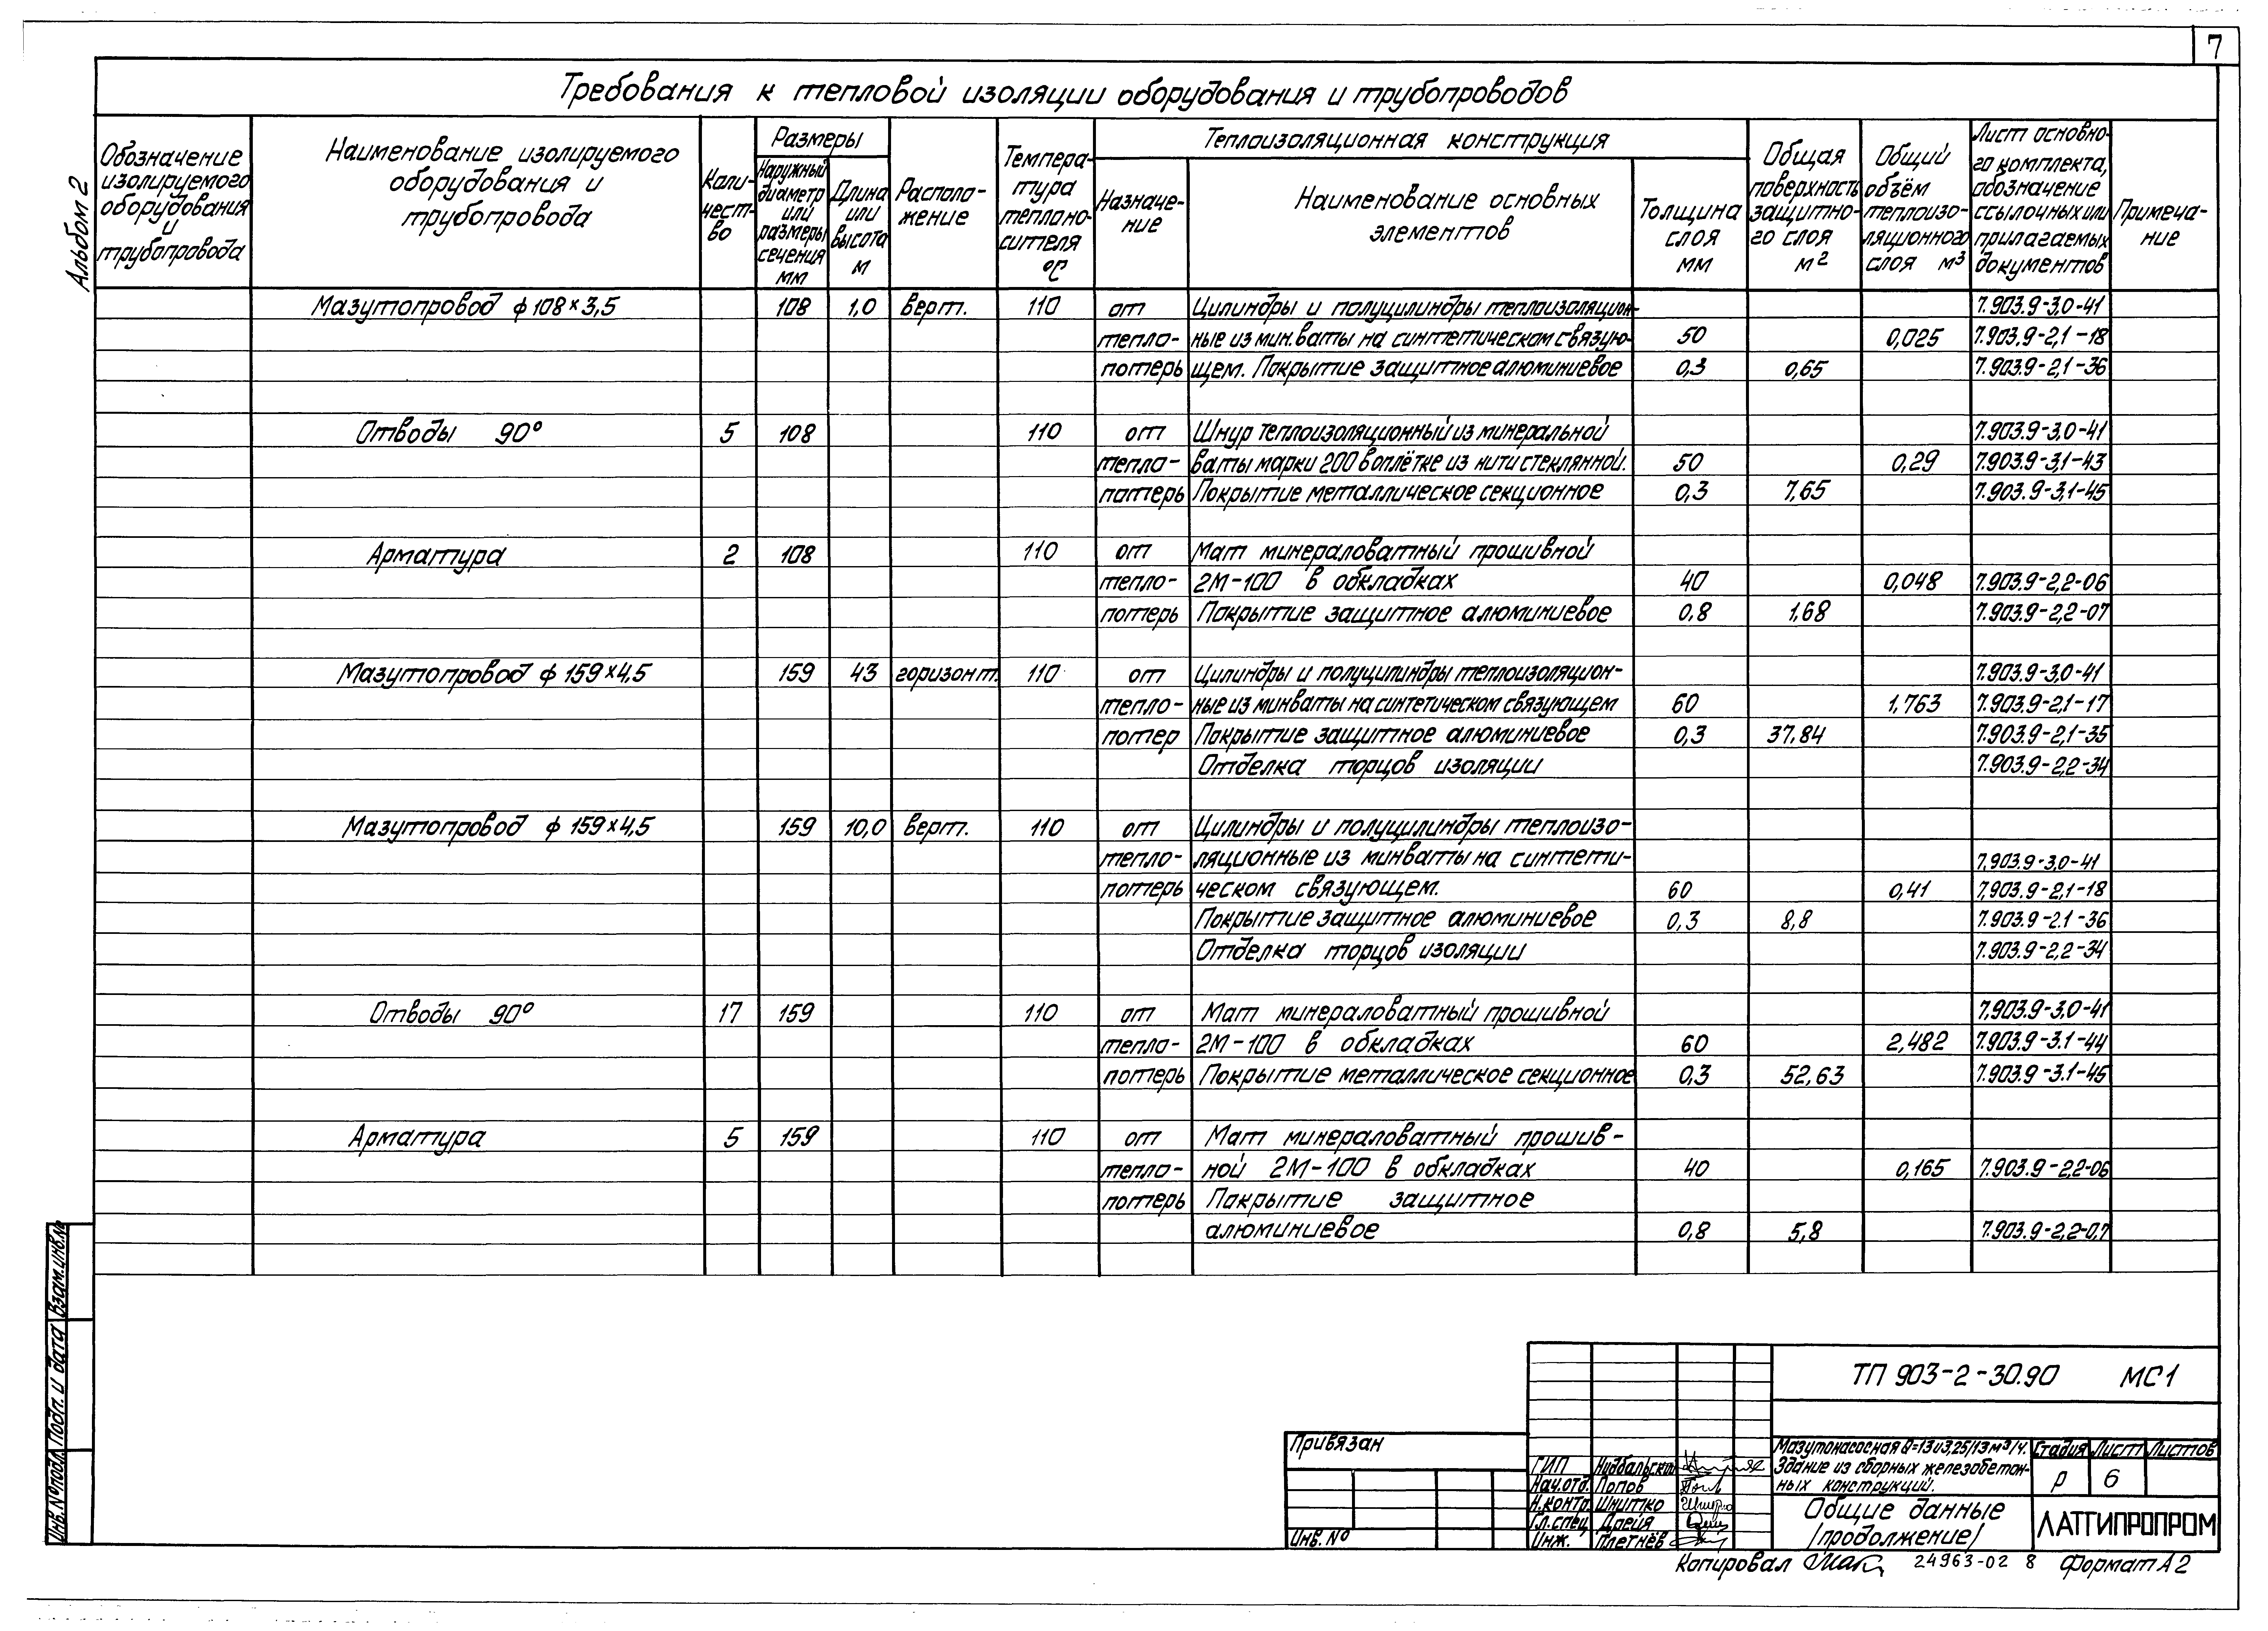 7
Альбом 2
Требования к тепловой изоляции оборудования и трубопроводов
Обозначение изолируемого оборудования и трубопровода
Наименование изолируемого оборудования и трубопровода
Количест-во
Размеры
Наружный диаметр или размеры сечения мм
Длина или высота м
Располо-жение
Темпера-тура теплоно-сителя °С
Теплоизоляционная конструкция
Назначе-ние
Наименование основных элементов
Толщина слоя мм
Общая поверхность защитно-го слоя м2
Общий объём теплоизо-ляционного слоя м3
Лист основно-го комплекта, обозначение ссылочных или прилагаемых документов
Примеча-ние
Мазутопровод ф108×3,5 108 1,0 верт. 110 от Цилиндры и полуцилиндры теплоизоляцион- 7.903.9-3,0-41
тепло- ные из мин.ваты на синтетическом связую- 50 0,025 7.903.9-2,1-18
потерь щем. Покрытие защитное алюминиевое 0,3 0,65 7.903.9-2,1-36
Отводы 90° 5 108 110 от Шнур теплоизоляционный из минеральной 7.903.9-3,0-41
тепло- ваты марки 200 в оплётке из нити стеклянной. 50 0,29 7.903.9-3,1-43
потерь Покрытие металлическое секционное 0,3 7,65 7.903.9-3,1-45
Арматура 2 108 110 от Мат минераловатный прошивной
тепло- 2М-100 в обкладках 40 0,048 7.903.9-2,2-06
потерь Покрытие защитное алюминиевое 0,8 1,68 7.903.9-2,2-07
Мазутопровод ф159×4,5 159 43 горизонт. 110 от Цилиндры и полуцилиндры теплоизоляцион- 7.903.9-3,0-41
тепло- ные из минваты на синтетическом связующем 60 1,763 7.903.9-2,1-17
потер Покрытие защитное алюминиевое 0,3 37,84 7.903.9-2,1-35
Отделка торцов изоляции 7.903.9-2,2-34
Мазутопровод ф159×4,5 159 10,0 верт. 110 от Цилиндры и полуцилиндры теплоизо-
тепло- ляционные из минваты на синтети- 7.903.9-3,0-41
потерь ческом связующем. 60 0,41 7.903.9-2,1-18
Покрытие защитное алюминиевое 0,3 8,8 7.903.9-2.1-36
Отделка торцов изоляции 7.903.9-2,2-34
Отводы 90° 17 159 110 от Мат минераловатный прошивной 7.903.9-3,0-41
тепло- 2М-100 в обкладках 60 2,482 7.903.9-3.1-44
потерь Покрытие металлическое секционное 0,3 52,63 7.903.9-3.1-45
Арматура 5 159 110 от Мат минераловатный прошив-
тепло- ной 2М-100 в обкладках 40 0,165 7.903.9-2,2-06
потерь Покрытие защитное
алюминиевое 0,8 5,8 7.903.9-2,2-0,7
Взам.инв.№
Подп. и дата
Инв.№подл.
Привязан
Инв. №
ТП 903-2-30.90 МС1
ГИП
Нач.отд. Попов
Н.контр. Шнитко
Гл.спец. Дрейя
Инж. Плетнёв
Мазутонасосная Q=13и3,25/13м3/ч. Здание из сборных железобетон-ных конструкций.
Стадия Лист Листов
Р 6
Общие данные /продолжение/
ЛАТГИПРОПРОМ
Копировал 24963-02 8 Формат А2